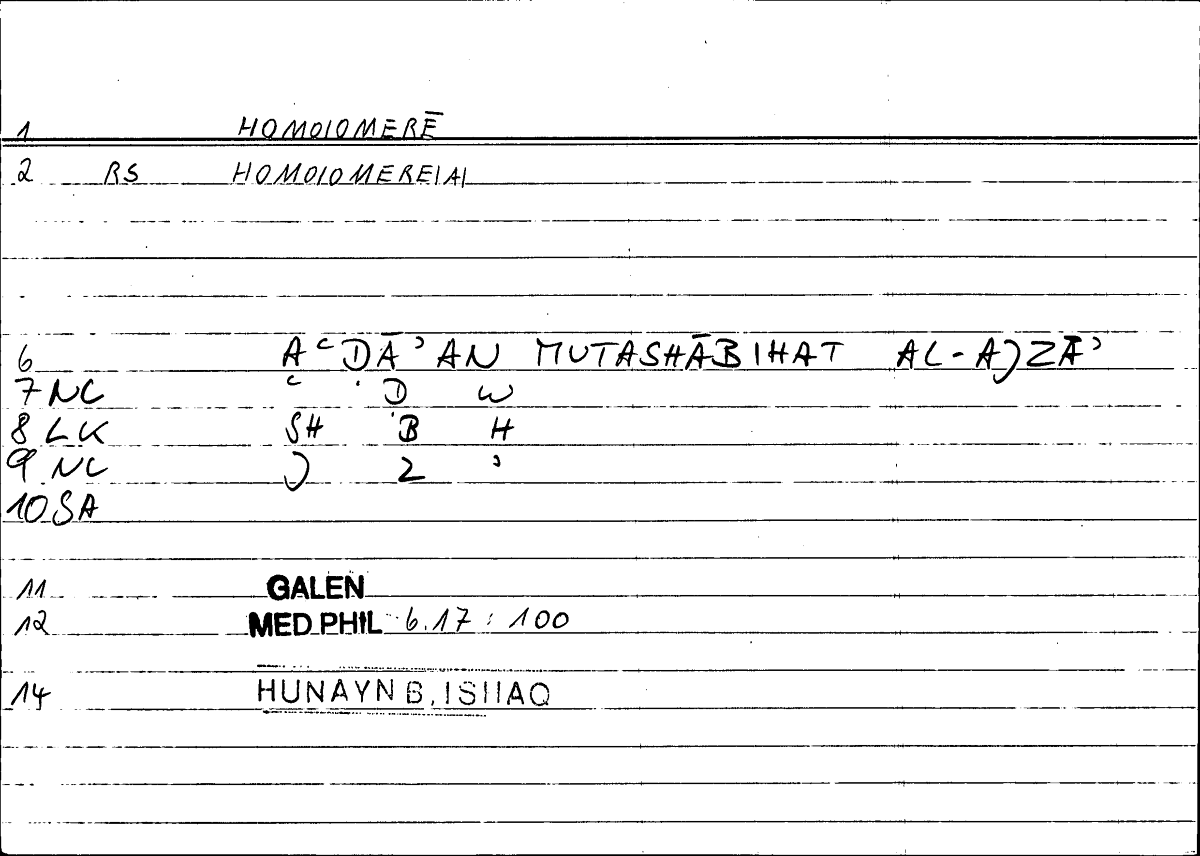 1 HOMOIOMERĒ
2 RS HOMOIOMEREIAI
6 AʿDĀʾAN MUTASHĀBIHAT AL-AJZĀʾ
7 NC ʿ D W
8 LK SH B H
9 NC J Z ʾ
10 SA
11 GALEN
12 MED PHIL 6.17 : 100
14 HUNAYN B. ISHAQ